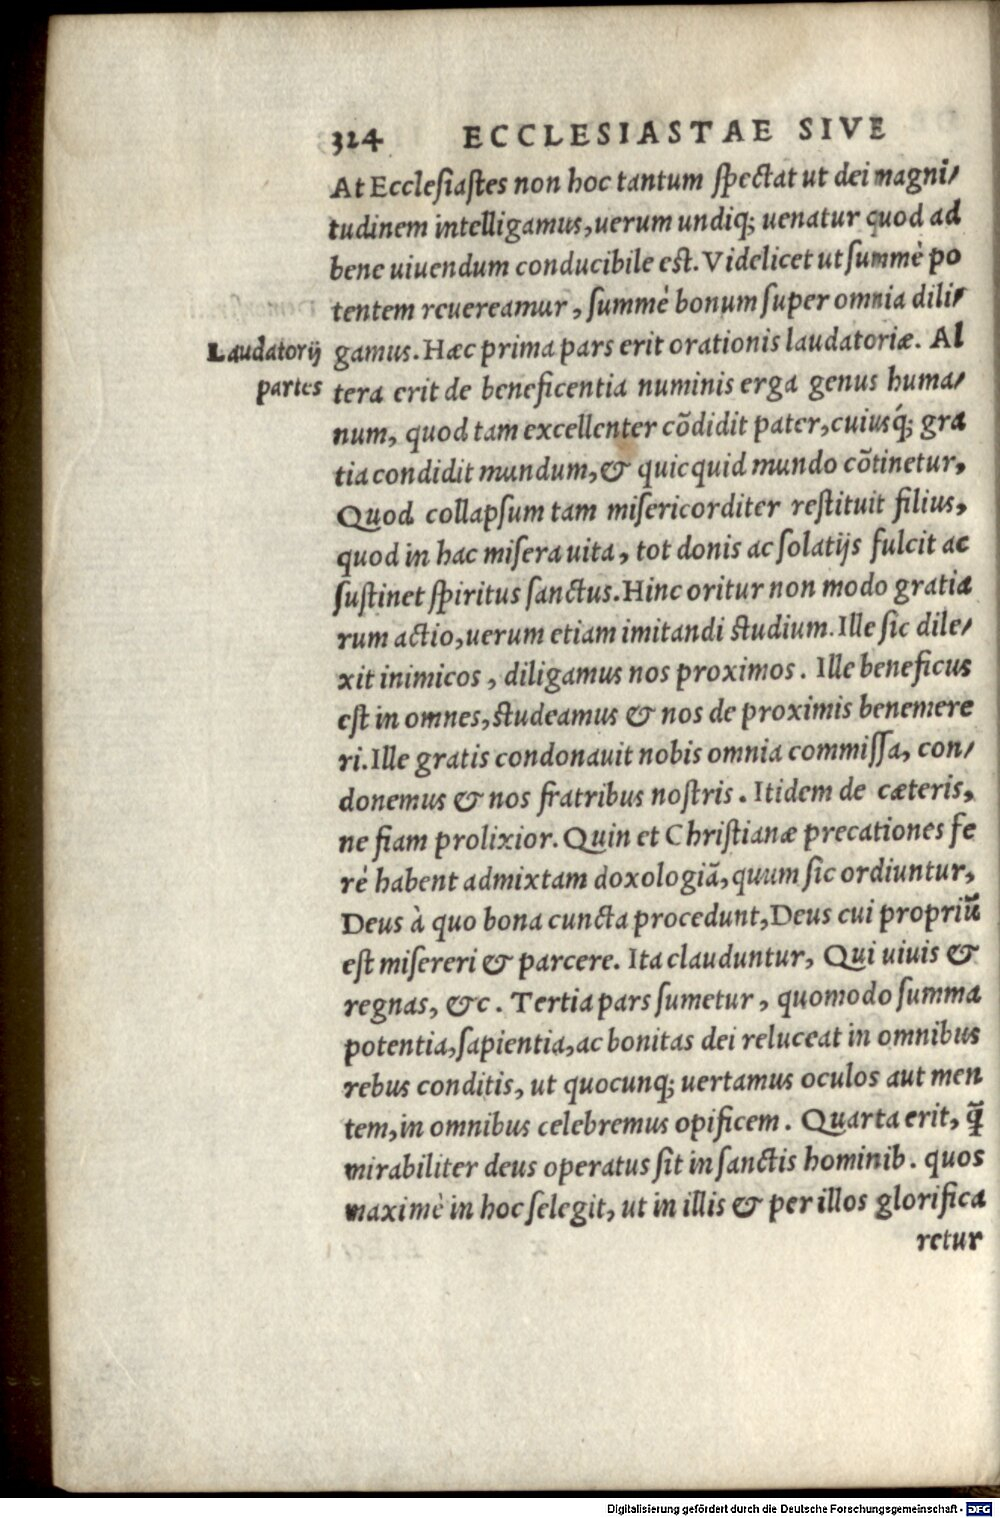 324 ECCLESIASTAE SIVE
At Ecclesiastes non hoc tantum spectat ut dei magni/
tudinem intelligamus, uerum undiq; uenatur quod ad
bene uiuendum conducibile est. Videlicet ut summè po
tentem reuereamur, summè bonum super omnia dili/
Laudatorij
partes
gamus. Hæc prima pars erit orationis laudatoriæ. Al
tera erit de beneficentia numinis erga genus huma/
num, quod tam excellenter cõdidit pater, cuiusq́; gra
tia condidit mundum, & quicquid mundo cõtinetur,
Quod collapsum tam misericorditer restituit filius,
quod in hac misera uita, tot donis ac solatijs fulcit ac
sustinet spiritus sanctus. Hinc oritur non modo gratia
rum actio, uerum etiam imitandi studium. Ille sic dile/
xit inimicos, diligamus nos proximos. Ille beneficus
est in omnes, studeamus & nos de proximis benemere
ri. Ille gratis condonauit nobis omnia commissa, con/
donemus & nos fratribus nostris. Itidem de cæteris,
ne fiam prolixior. Quin et Christianæ precationes fe
rè habent admixtam doxologiã, quum sic ordiuntur,
Deus à quo bona cuncta procedunt, Deus cui propriũ
est misereri & parcere. Ita clauduntur, Qui uiuis &
regnas, &c. Tertia pars sumetur, quomodo summa
potentia, sapientia, ac bonitas dei reluceat in omnibus
rebus conditis, ut quocunq; uertamus oculos aut men
tem, in omnibus celebremus opificem. Quarta erit, q̃
mirabiliter deus operatus sit in sanctis hominib. quos
maximè in hoc selegit, ut in illis & per illos glorifica
retur
Digitalisierung gefördert durch die Deutsche Forschungsgemeinschaft - DFG